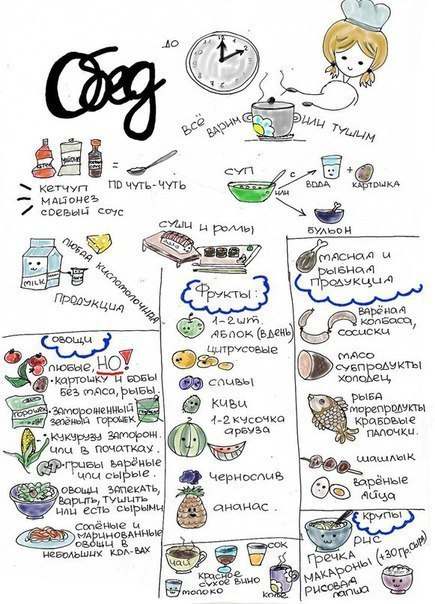 Обед
до
всё варим или тушим
кетчуп
майонез
соевый соус
= по чуть-чуть
суп
с
вода
+
картошка
или
бульон
MILK
любая кисломолочная
продукция
суши и роллы
овощи
любые, НО!
• картошку и бобы
без мяса, рыбы.
горошек
• замороженный
зелёный горошек
• кукурузу заморож.
или в початках.
• грибы варёные
или сырые.
овощи запекать,
варить, тушить
или есть сырыми
солёные и
маринованные
овощи в
небольших кол-вах
Фрукты:
1-2 шт.
яблок (в день
цитрусовые
сливы
киви
1-2 кусочка
арбуза
чернослив
ананас.
чай
красное
сухое вино
сок
молоко
кофе
мясная и
рыбная
продукция
варёная
колбаса,
сосиски
мясо
субпродукты
холодец
рыба
морепродукты
крабовые
палочки.
шашлык
варёные
яйца
крупы
рис
гречка
макароны (+30 гр. сыра)
рисовая
лапша